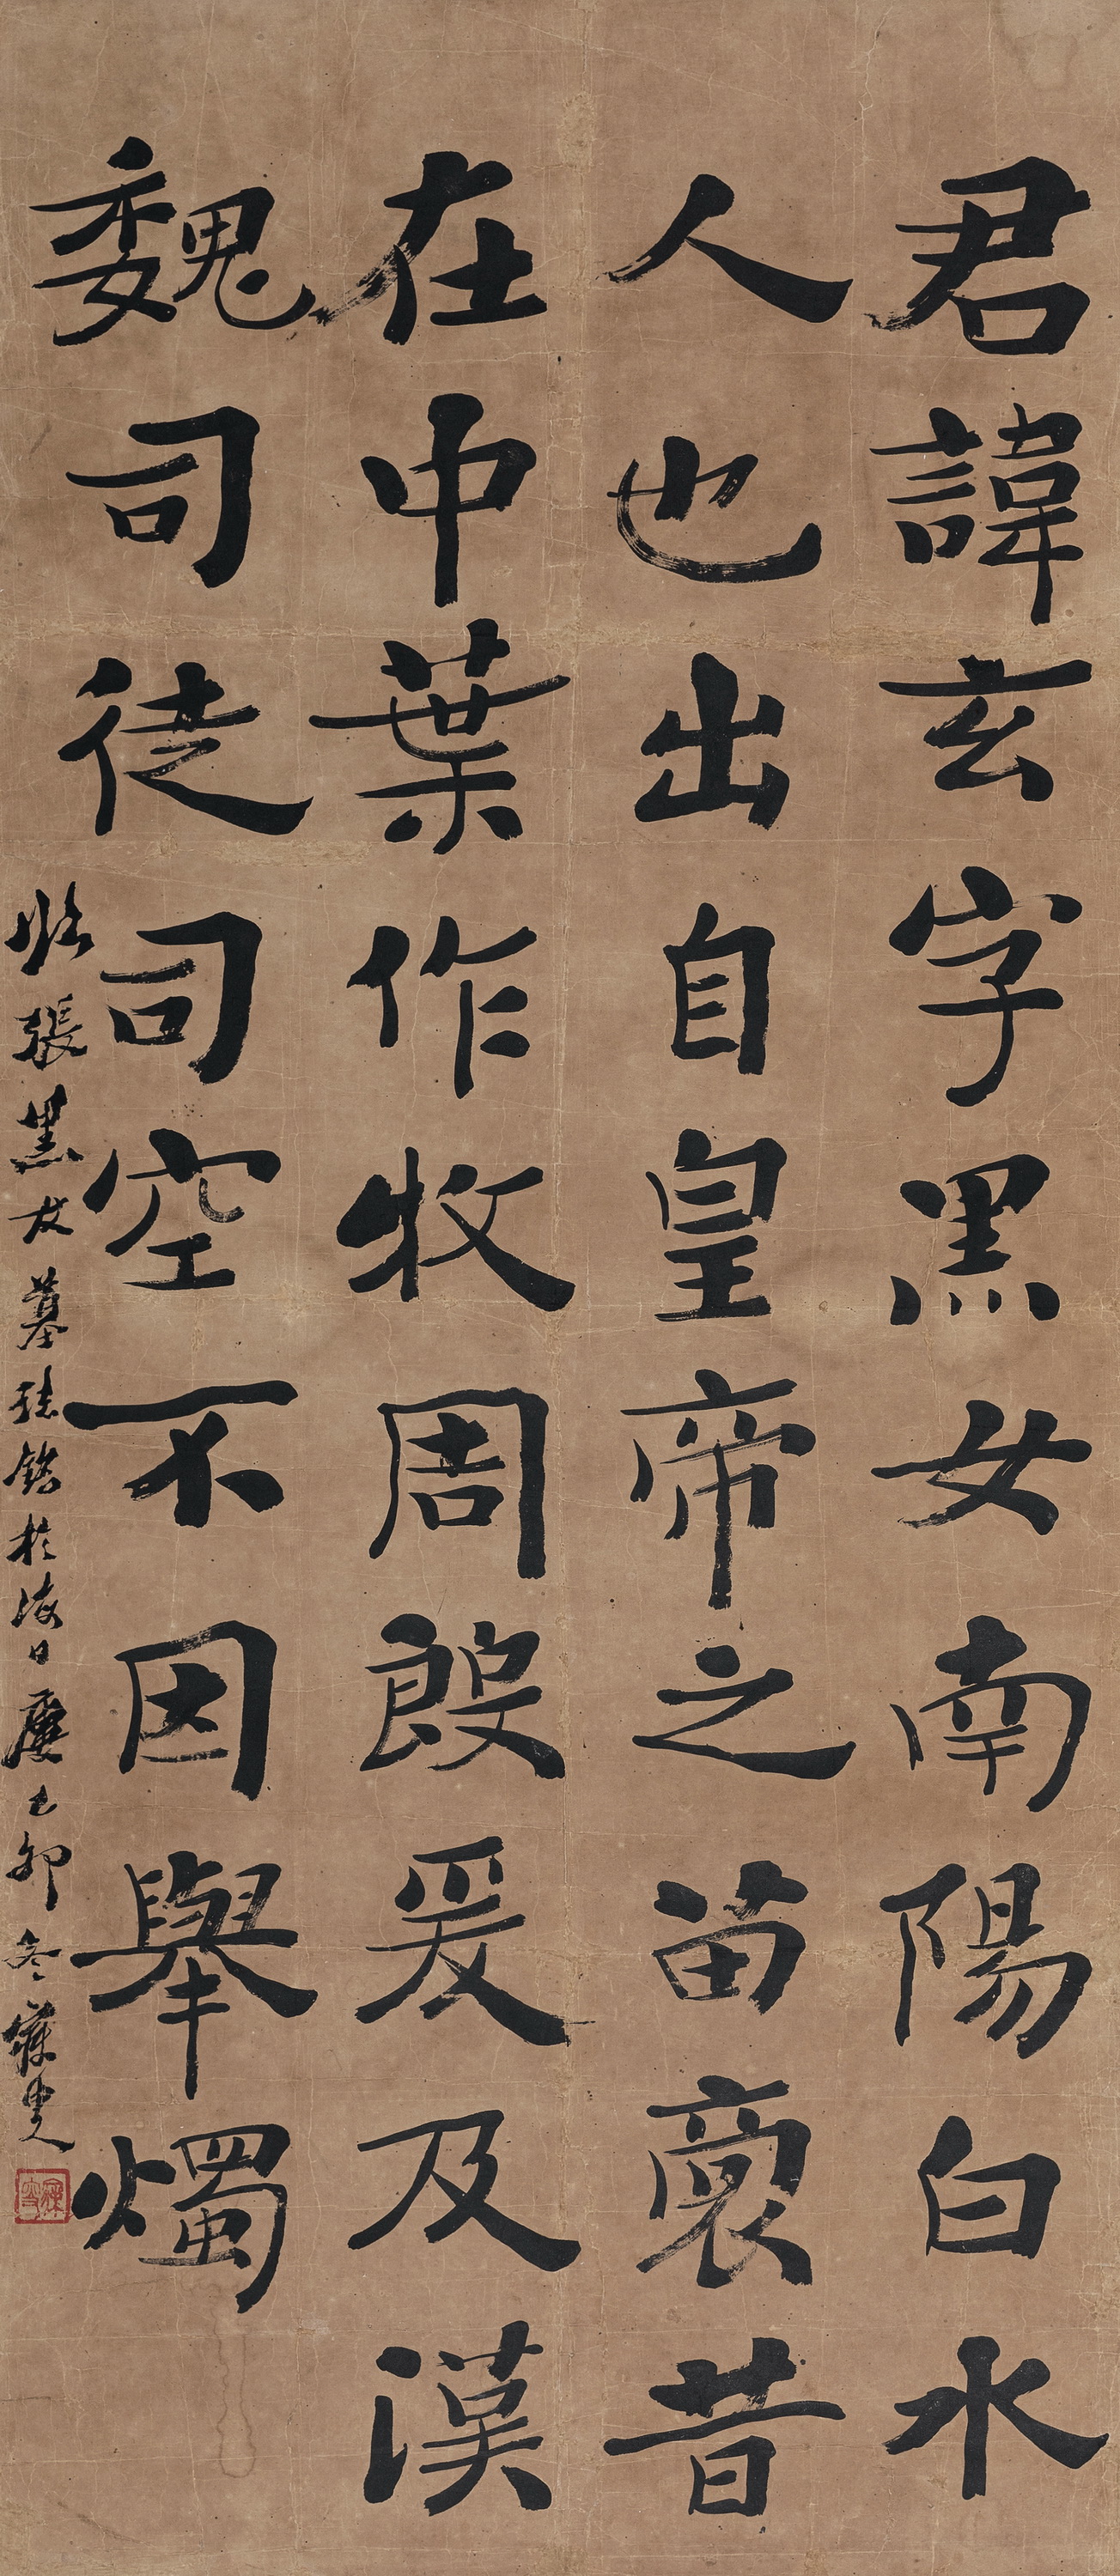 君諱玄字黑女南陽白水
人也出自皇帝之苗裔昔
在中葉作牧周殷爰及漢
魏司徒司空不因舉燭
臨張黑女墓誌銘於海日廔己卯冬寐叟